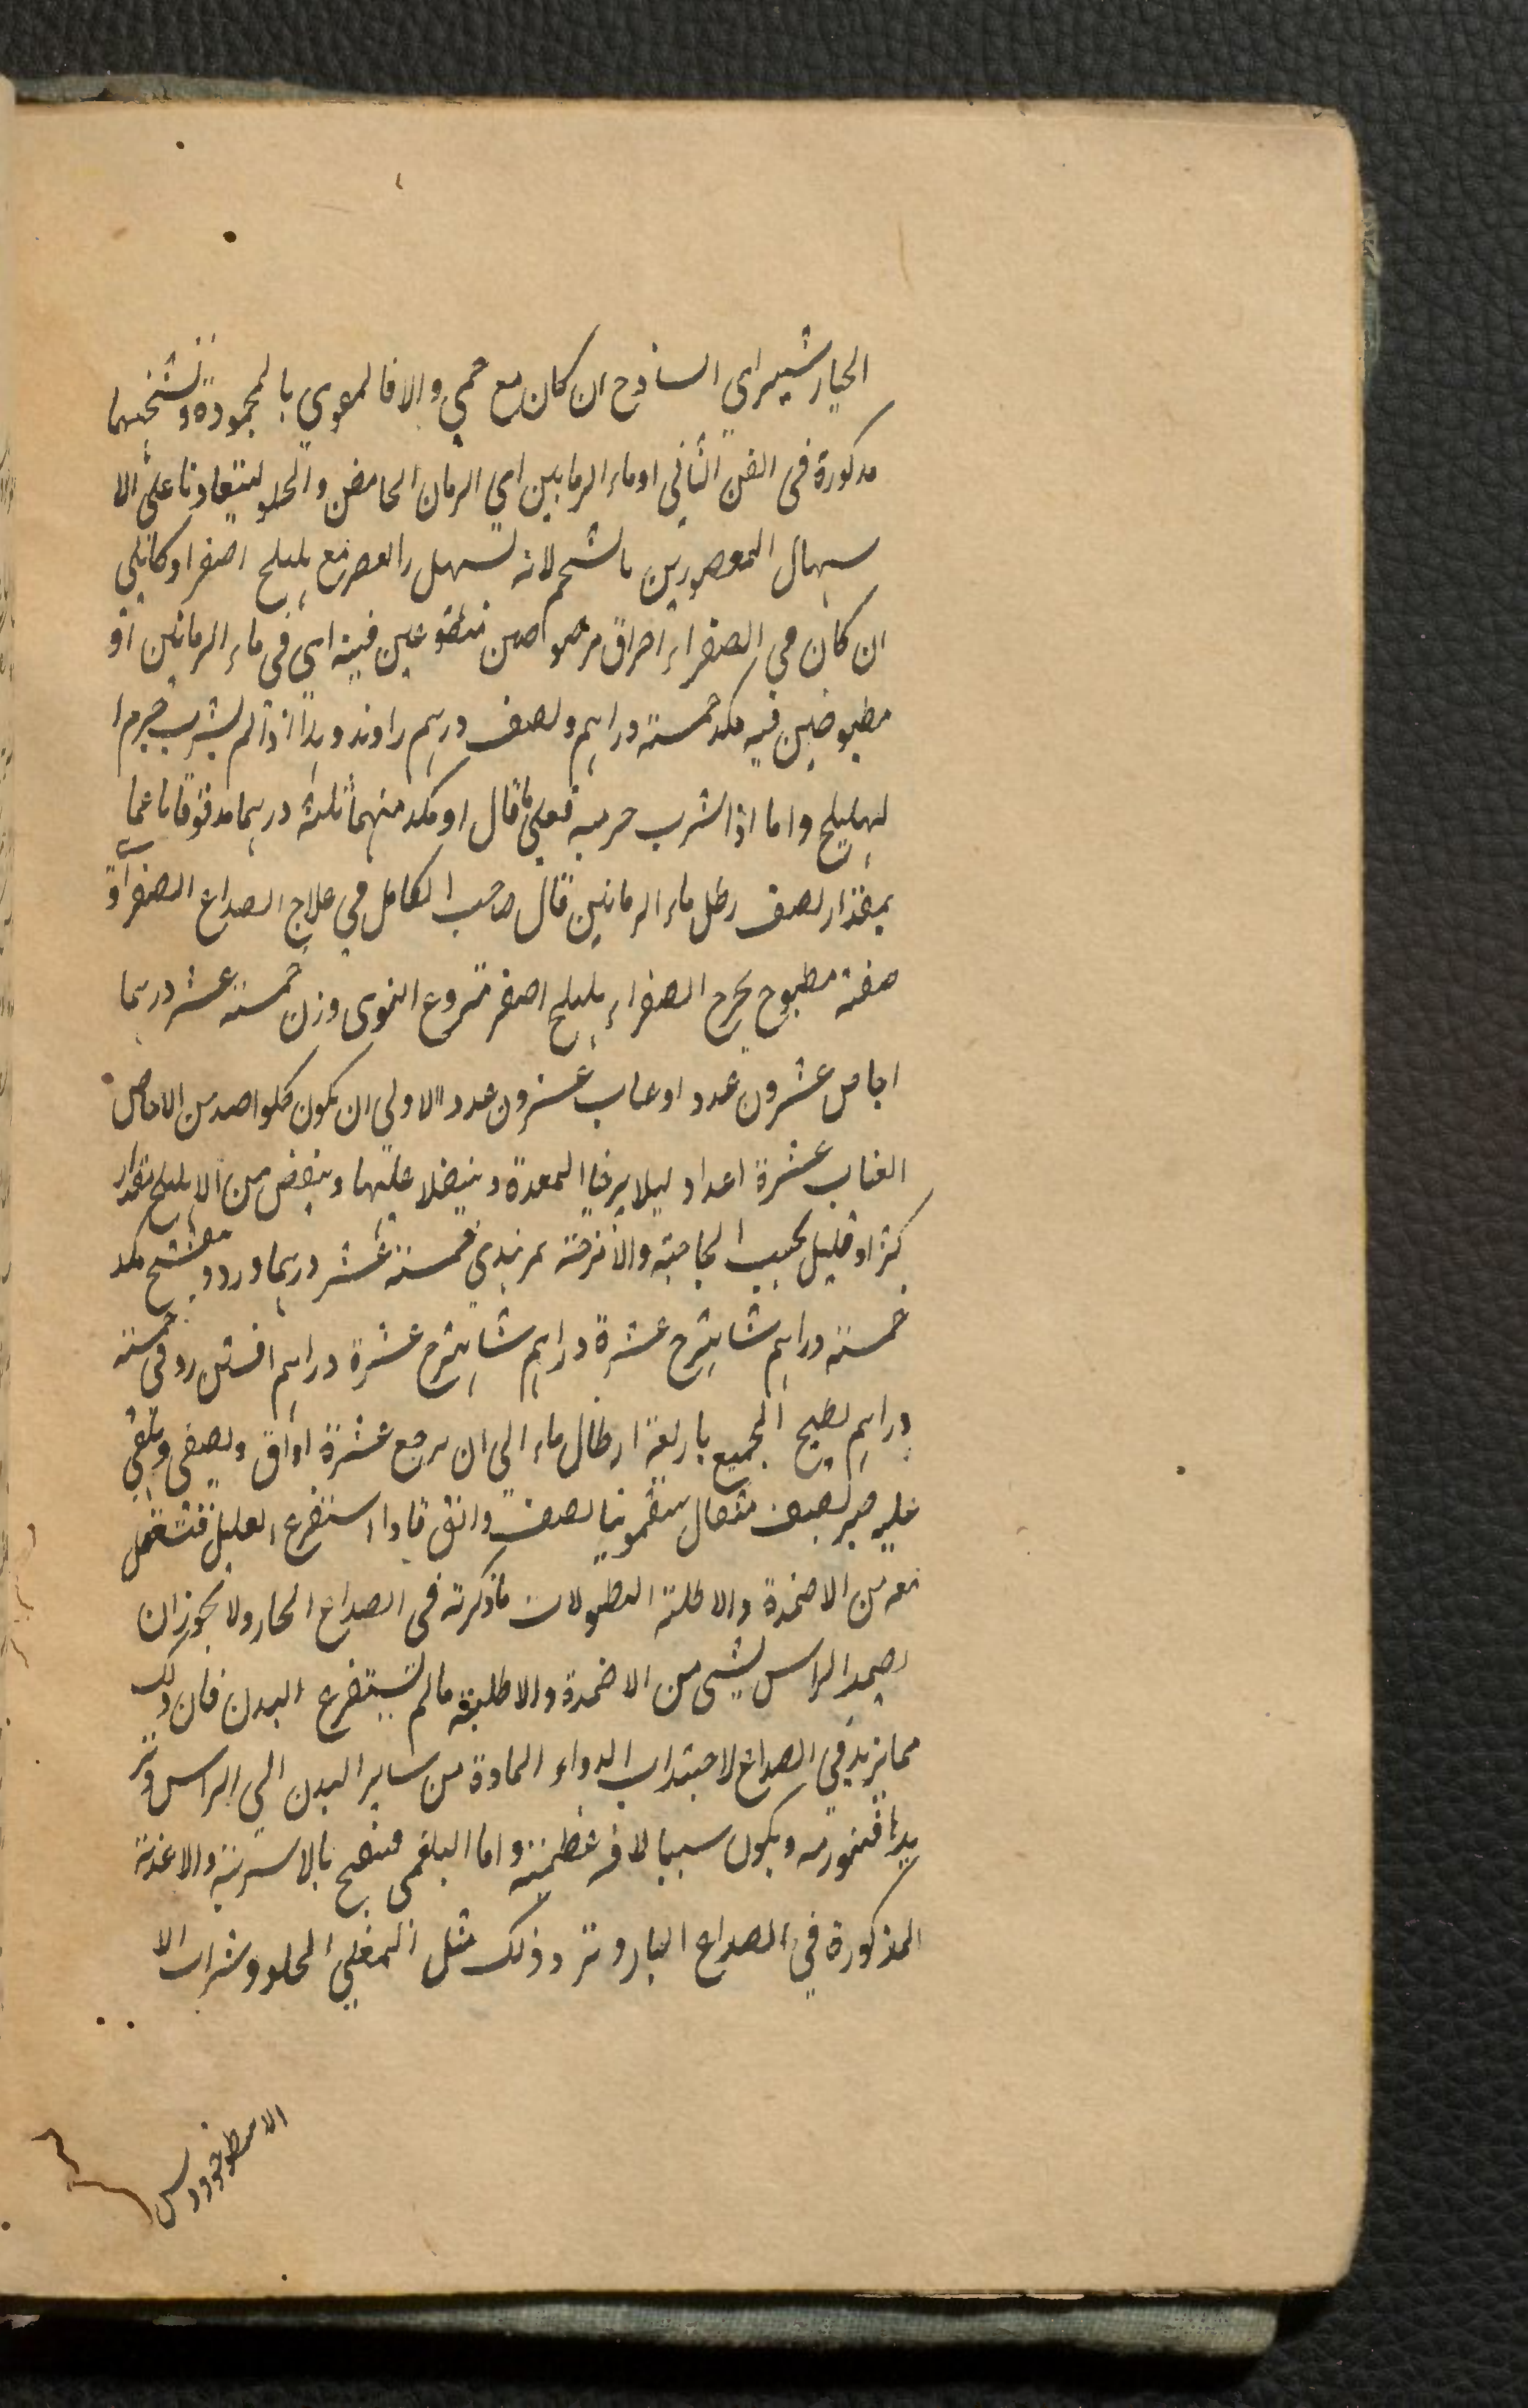 الخيار شيبراي الساذج ان كان مع حمي والا فالمقوي بالمحمودة ونسختهما
مذكورة في الفن الثاني اوماء الرمانين اي الرمان الحامض والحلو ليتعاونا على الا
سهال المعصورين بالشحم لانه تسهل بالعصر مع هليلج اصفر او كابلي
ان كان في الصفراء احتراق مرضوضين منقوعين فيه اي في ماء الرمانين او
مطبوخين فيه مكد خمسته دراهم ونصف درهم راوند وهذا اذا لم يشرب جرم ا
لهليلج واما اذا شرب جرمه فعلى ما قال او مكد منهما ثلثه درهما مدقوقا ناعما
بمقدار نصف رطل ماء الرمانين قال صاحب الكامل في علاج الصداع الصفراوي
صفته مطبوخ يخرج الصفراء هليلج اصفر منزوع النوى وزن خمسته عشر درهما
اجاص عشرون عدد او عناب عشرون عدد الاولى ان يكون كلواحد من الاجاص
العناب عشرة اعداد ليلا يرخيا المعدة ويثقلا عليها وينقص من الاهليلج بمقدار
كثر او قليل بحسب الحاجة والامزجة تمرهندي خمسته عشر درهما ورد مكد
خمسته دراهم شاهترج عشرة دراهم شاهترج عشرة دراهم افسنتين رومي خمسته
دراهم يطبخ الجميع باربعة ارطال ماء الي ان يرجع عشرة اواق ويصفى ويلقي
عليه صبر نصف مثقال سقمونيا نصف دانق فاذا استفرغ العليل فتشتغل
معه من الاضمدة والاطلية النطولات ما ذكرته في الصداع الحار ولا يجوز ان
يضمد الراس بشي من الاضمدة والاطلية ما لم تستفرغ البدن فان ذلك
مما يزيد في الصداع لاجتذاب الدواء المادة من ساير البدن الي الراس وتز
يد ها فتورمه ويكون سببا لافه عظيمة واما البلغمي فينضج بالاشربة والاغذية
المذكورة في الصداع البارد وذلك مثل المغلي الحلو وشراب الا
الاسطوخودوس